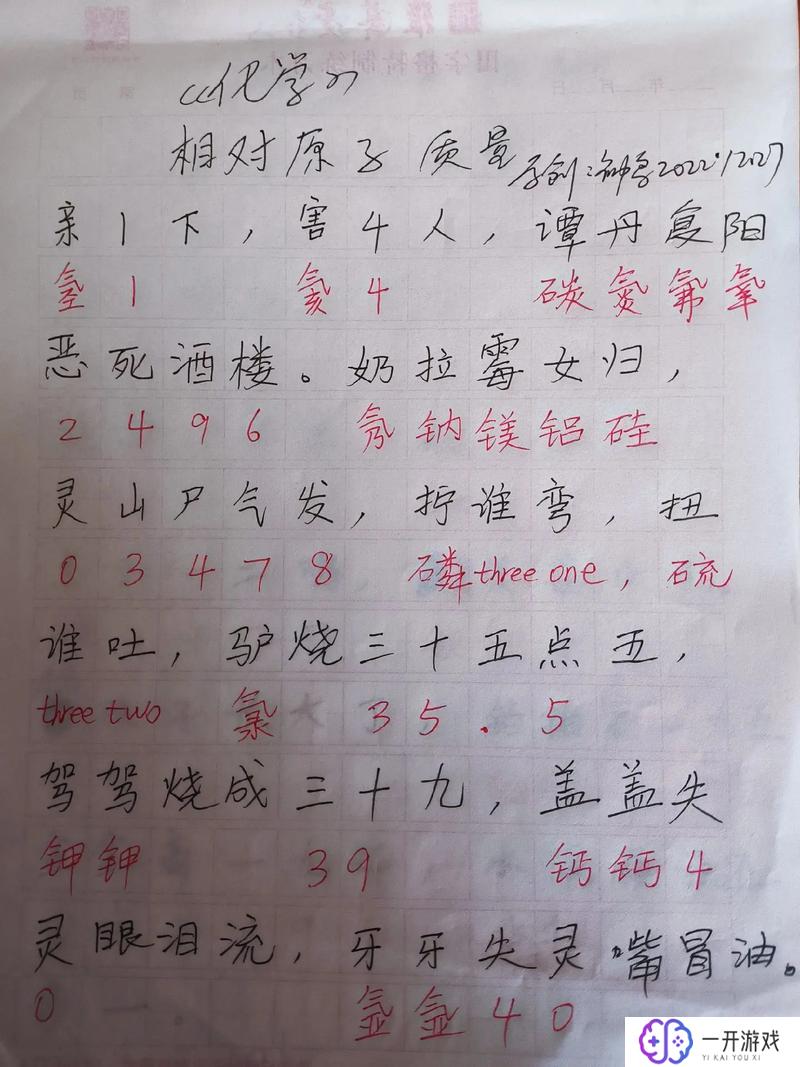 《化学》
相对原子质量 2022.12.27
亲1下，害4人，谭丹复阳
氢1 氦4 碳氮氟氧
恶死酒楼。奶拉霉女归，
2 4 9 6 氖钠镁铝硅
灵山尸气发，拧谁弯，扭
0 3 4 7 8 磷three one，硫
谁吐，驴烧三十五点五，
three two 氯 3 5 . 5
驾驾烧成三十九，盖盖失
钾钾 3 9 钙钙4
灵眼泪流，牙牙失灵嘴冒油。
0 氩氩40
一开游戏
YI KAI YOU XI